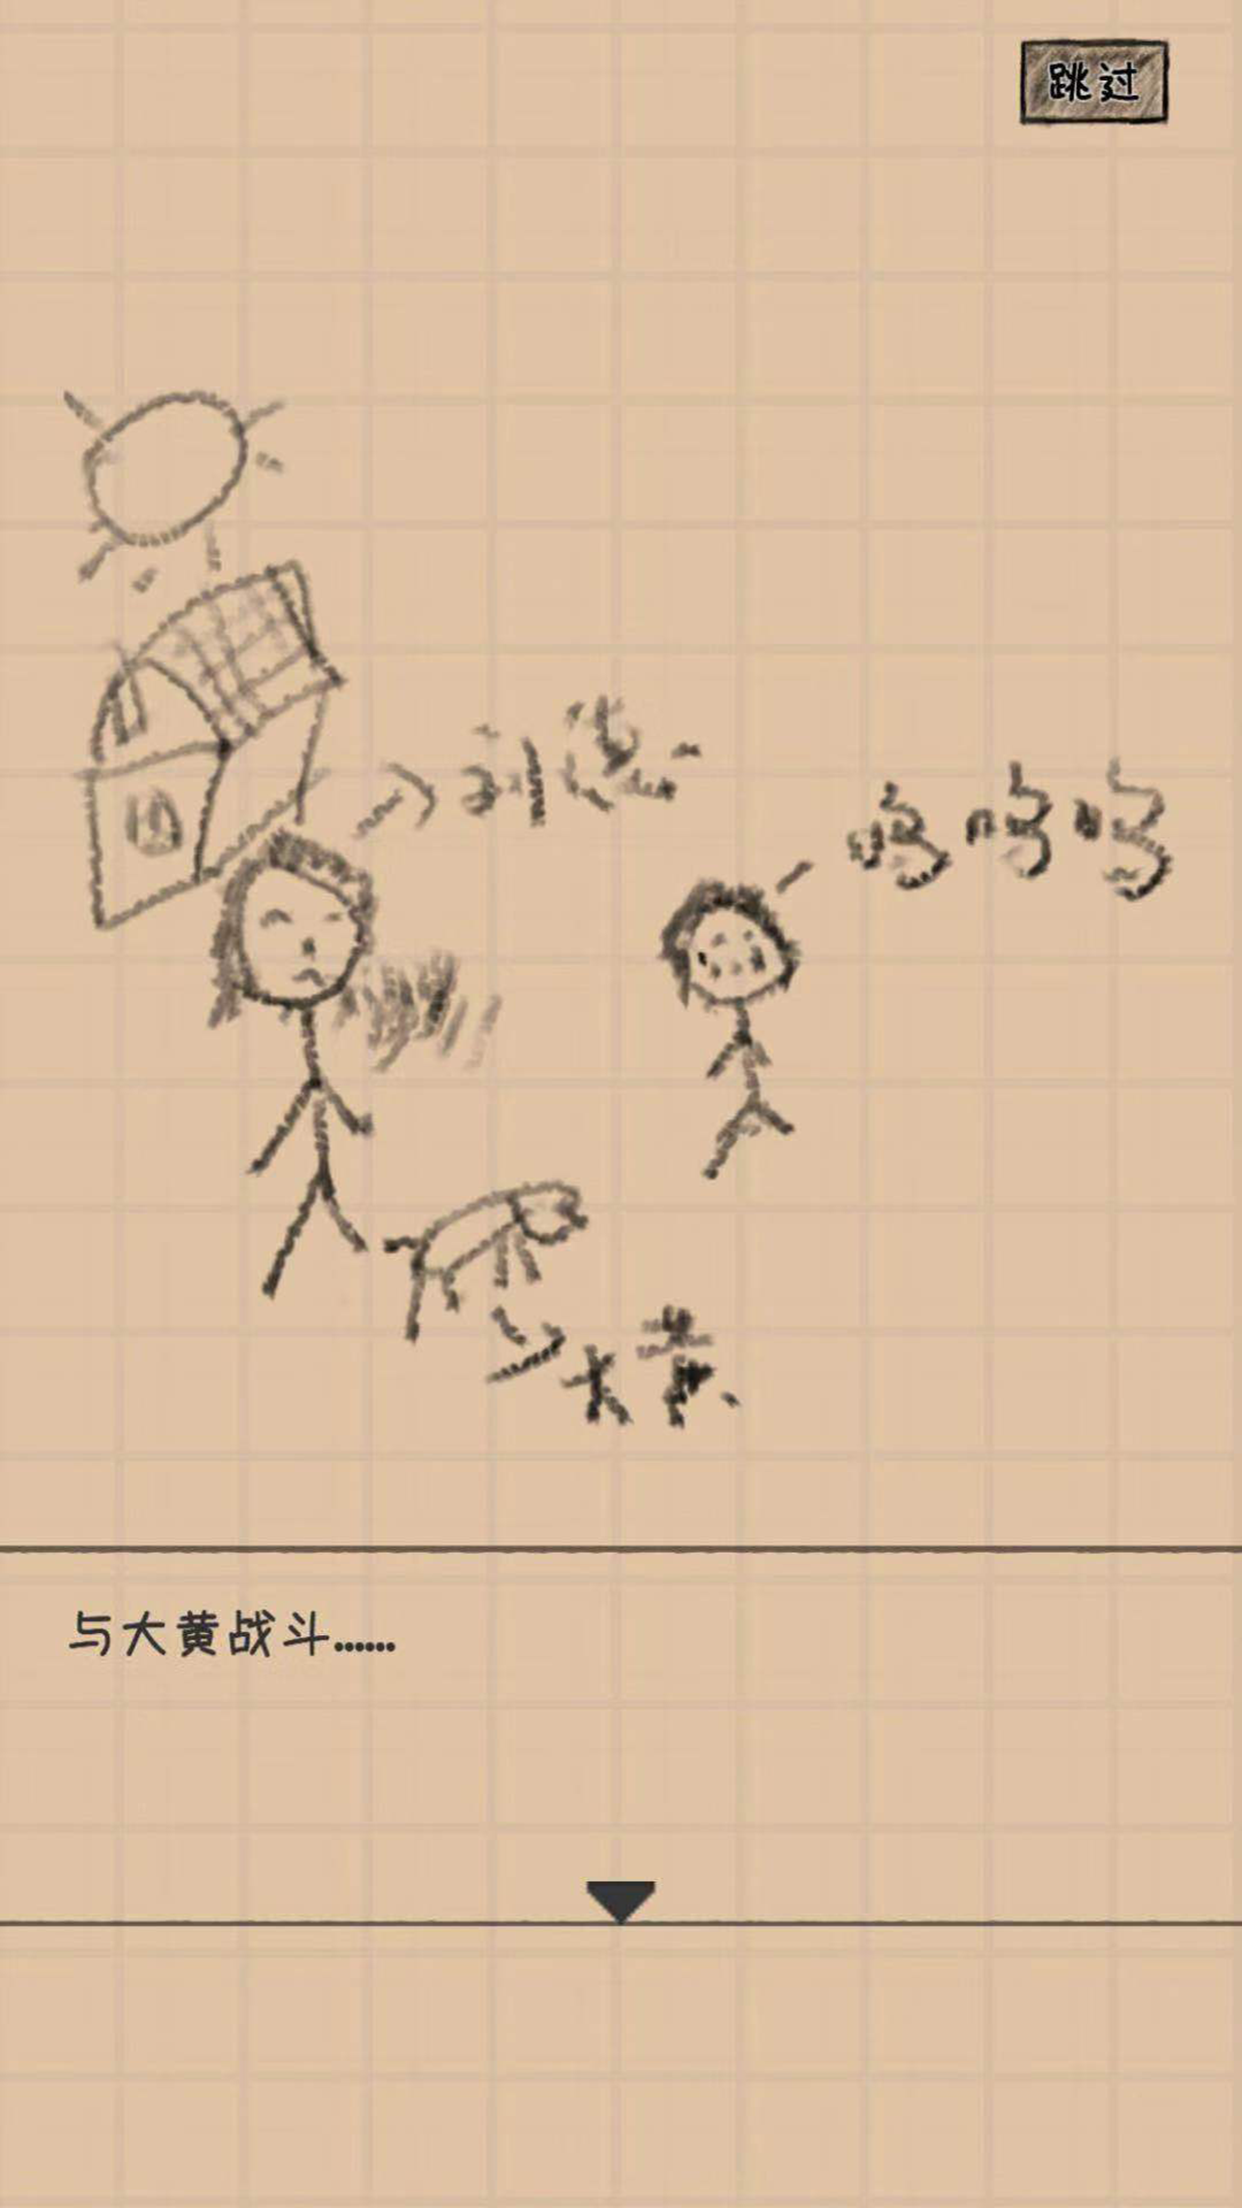 跳过
呜呜呜
大黄
与大黄战斗......